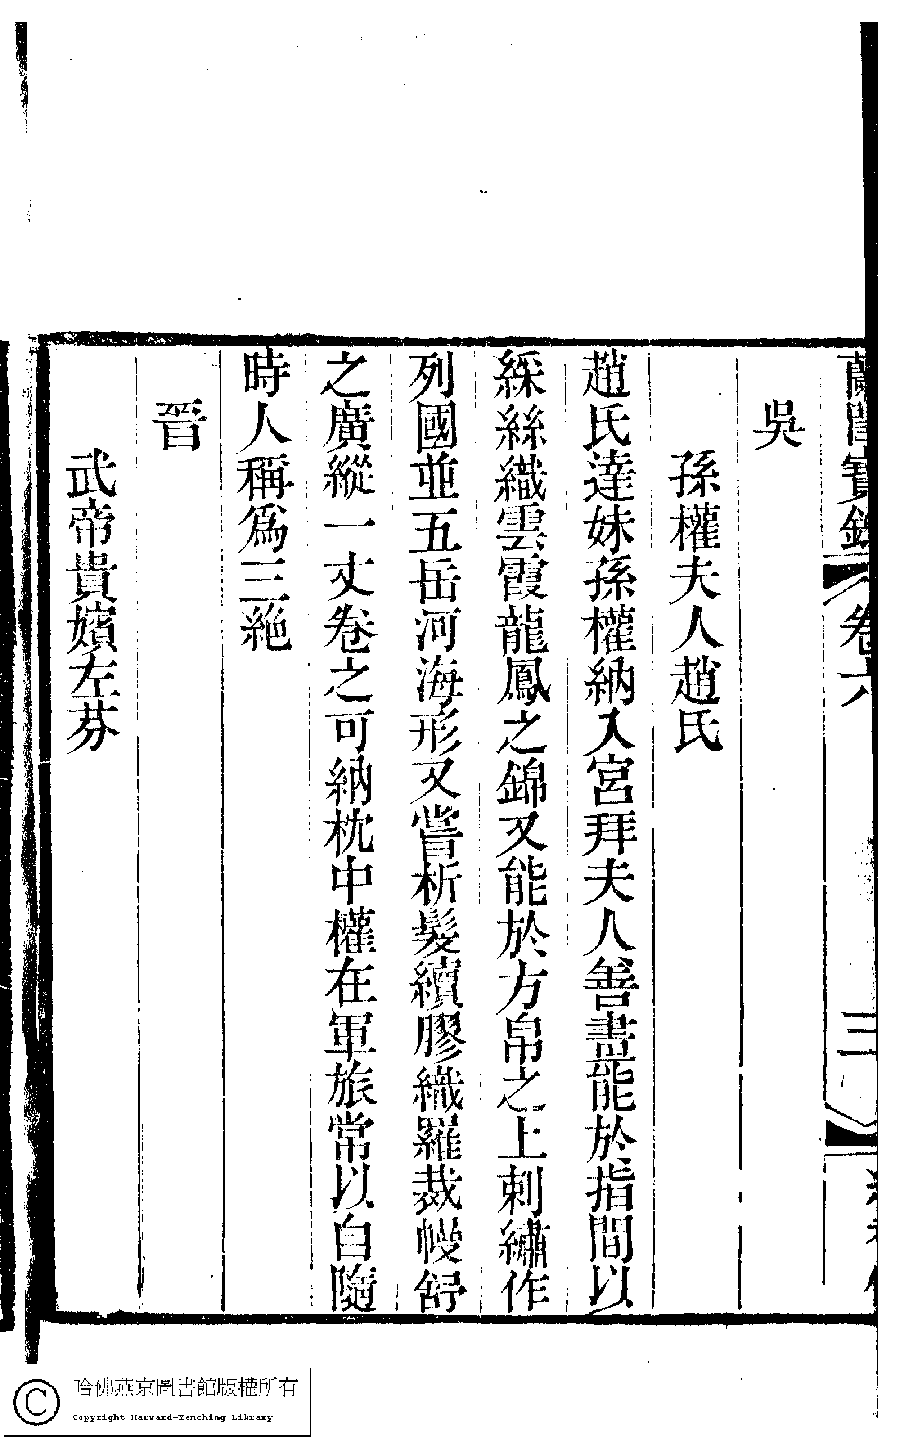 蘭閨寶錄 卷六 三
吳
孫權夫人趙氏
趙氏達妹孫權納入宮拜夫人善畫能於指間以
綵絲織雲霞龍鳳之錦又能於方帛之上刺繡作
列國並五岳河海形又嘗析髮續膠織羅裁幔舒
之廣縱一丈卷之可納枕中權在軍旅常以自隨
時人稱爲三絶
晉
武帝貴嬪左芬
哈佛燕京圖書館版權所有
Copyright Harvard-Yenching Library